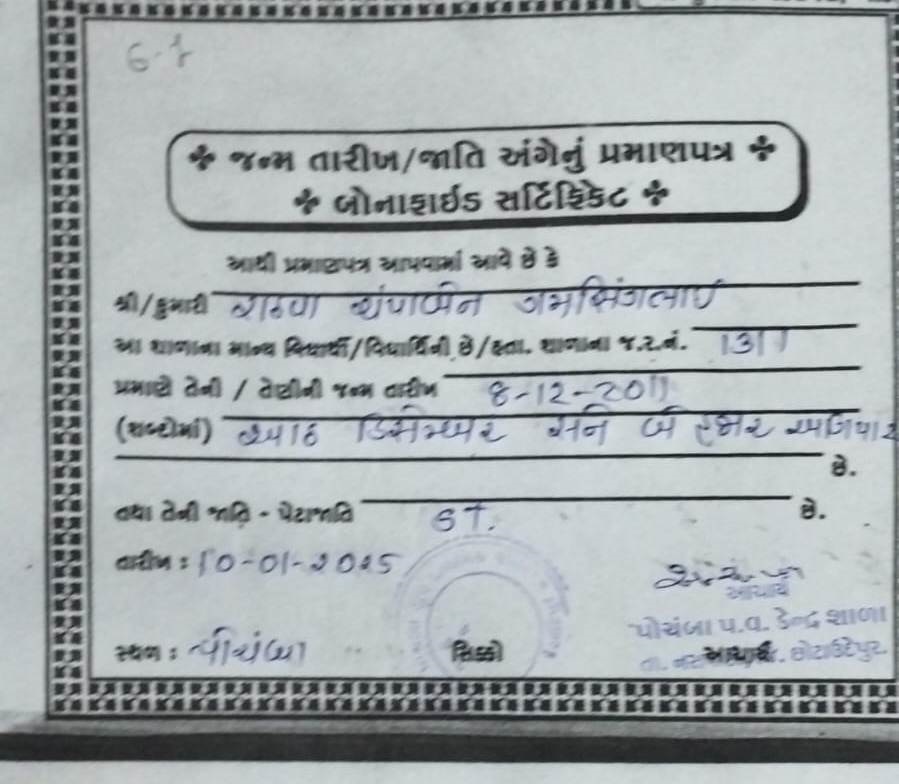 6-1
જન્મ તારીખ/જાતિ અંગેનું પ્રમાણપત્ર
બોનાફાઈડ સર્ટિફિકેટ
આથી પ્રમાણપત્ર આપવામાં આવે છે કે
શ્રી/કુમારી રાઠવા ચંપાબેન
આ શાળાના માન્ય વિદ્યાર્થી/વિદ્યાર્થિની છે/હતા. શાળાના જ.ર.નં. 1311
પ્રમાણે તેની / તેણીની જન્મ તારીખ 8-12-2011
(શબ્દોમાં) આઠ ડિસેમ્બર સને બે હજાર અગિયાર
છે.
તથા તેની જાતિ - પેટાજાતિ ST. છે.
તારીખ : 10-01-2025
આચાર્ય
પોચંબા પ.વ. કેન્દ્ર શાળા
સ્થળ : પોચંબા સિક્કો આચાર્ય છોટાઉદેપુર